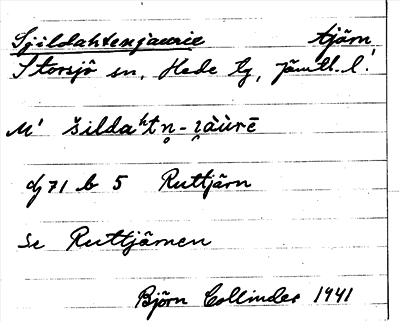 Sjildahtenjaurie tjärn
Storsjö sn, Hede tg, Jämtl. l.
M' šildaʰtn̥-i̯àùrē
dj 71 b 5 Ruttjärn
se Ruttjärnen
Björn Collinder 1941